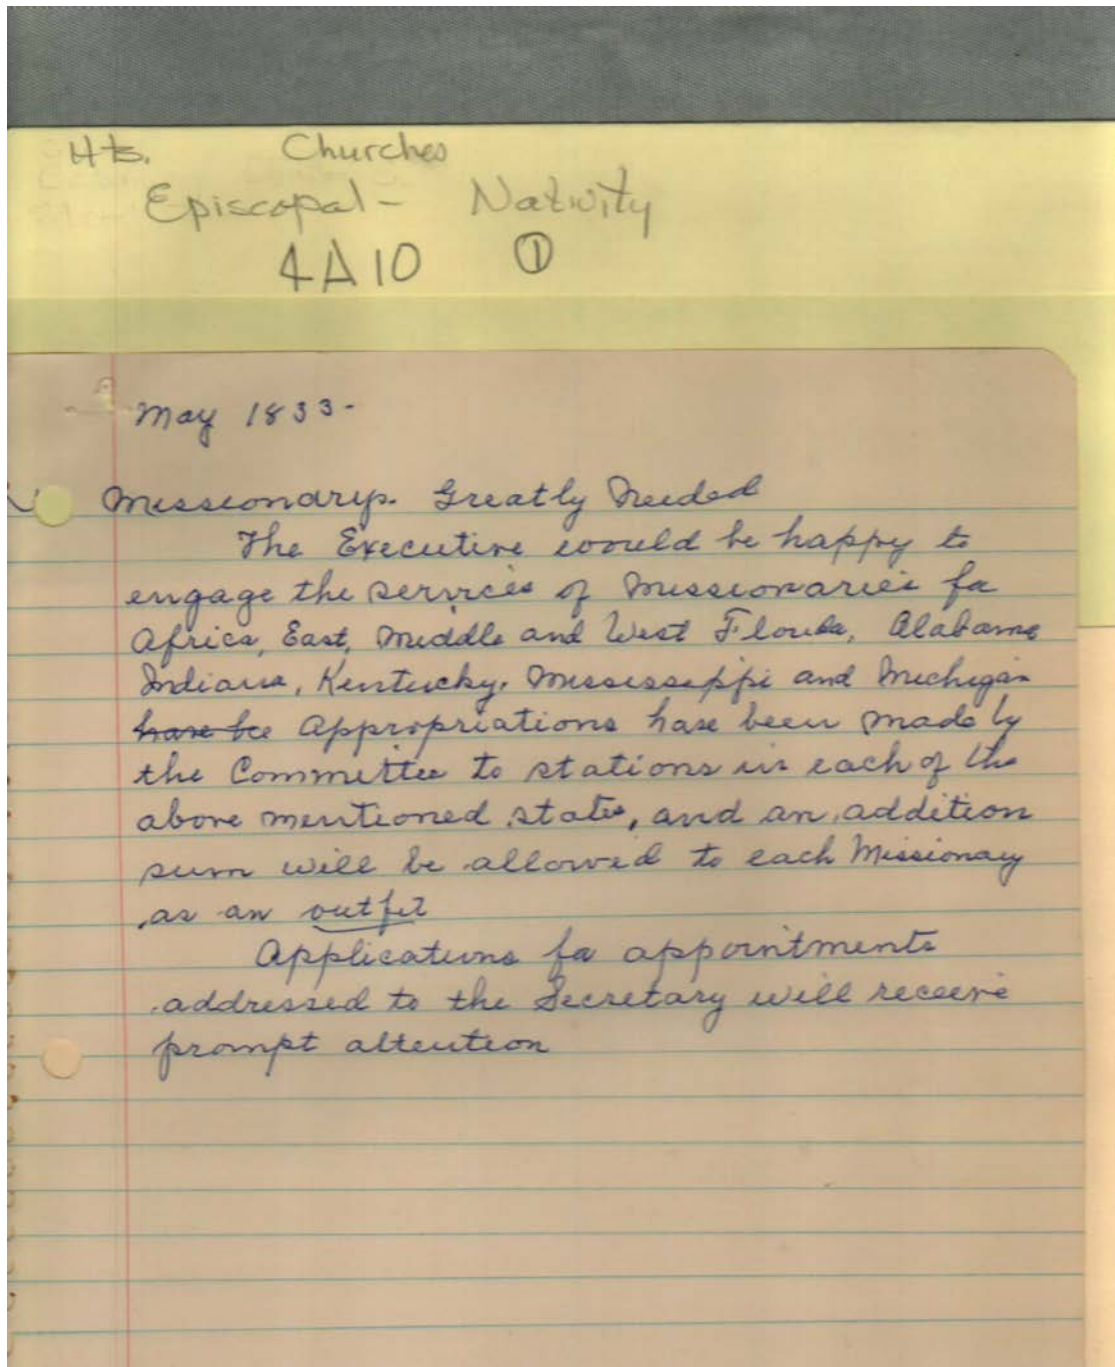 Hts. Churches
Episcopal - Nativity
4A10 ①
May 1833-
Missionarys. Greatly Needed
The Executive would be happy to
engage the services of Missionaries for
Africa, East, Middle and West Florida, Alabama
Indiana, Kentucky, Mississippi and Michigan
have be Appropriations have been made by
the Committee to stations in each of the
above mentioned states, and an addition
sum will be allowed to each Missionary
as an outfit
Applications for appointments
addressed to the Secretary will receive
prompt attention